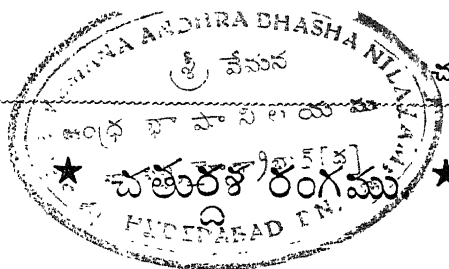 ANDHRA BHASHA NILAYAM,
శ్రీ వేమన
ఆంధ్ర భాషా నిలయము
★ చతుర్దశ రంగము. ★
HYDERABAD DN.